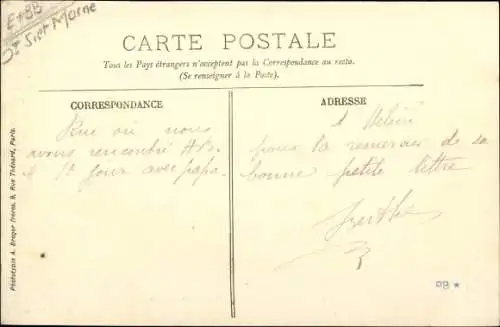 E+BB
Dt Sist Marne
CARTE POSTALE
Tous les Pays étrangers n'acceptent pas la Correspondance au recto.
(Se renseigner à la Poste).
CORRESPONDANCE
Rue où nous
avons rencontré AB.
le 1r jour avec papa.
ADRESSE
à
pour la remercier de sa
bonne petite lettre
Berthe
Phototypie A. Breger frères, 9, Rue Thénard, Paris.
PB